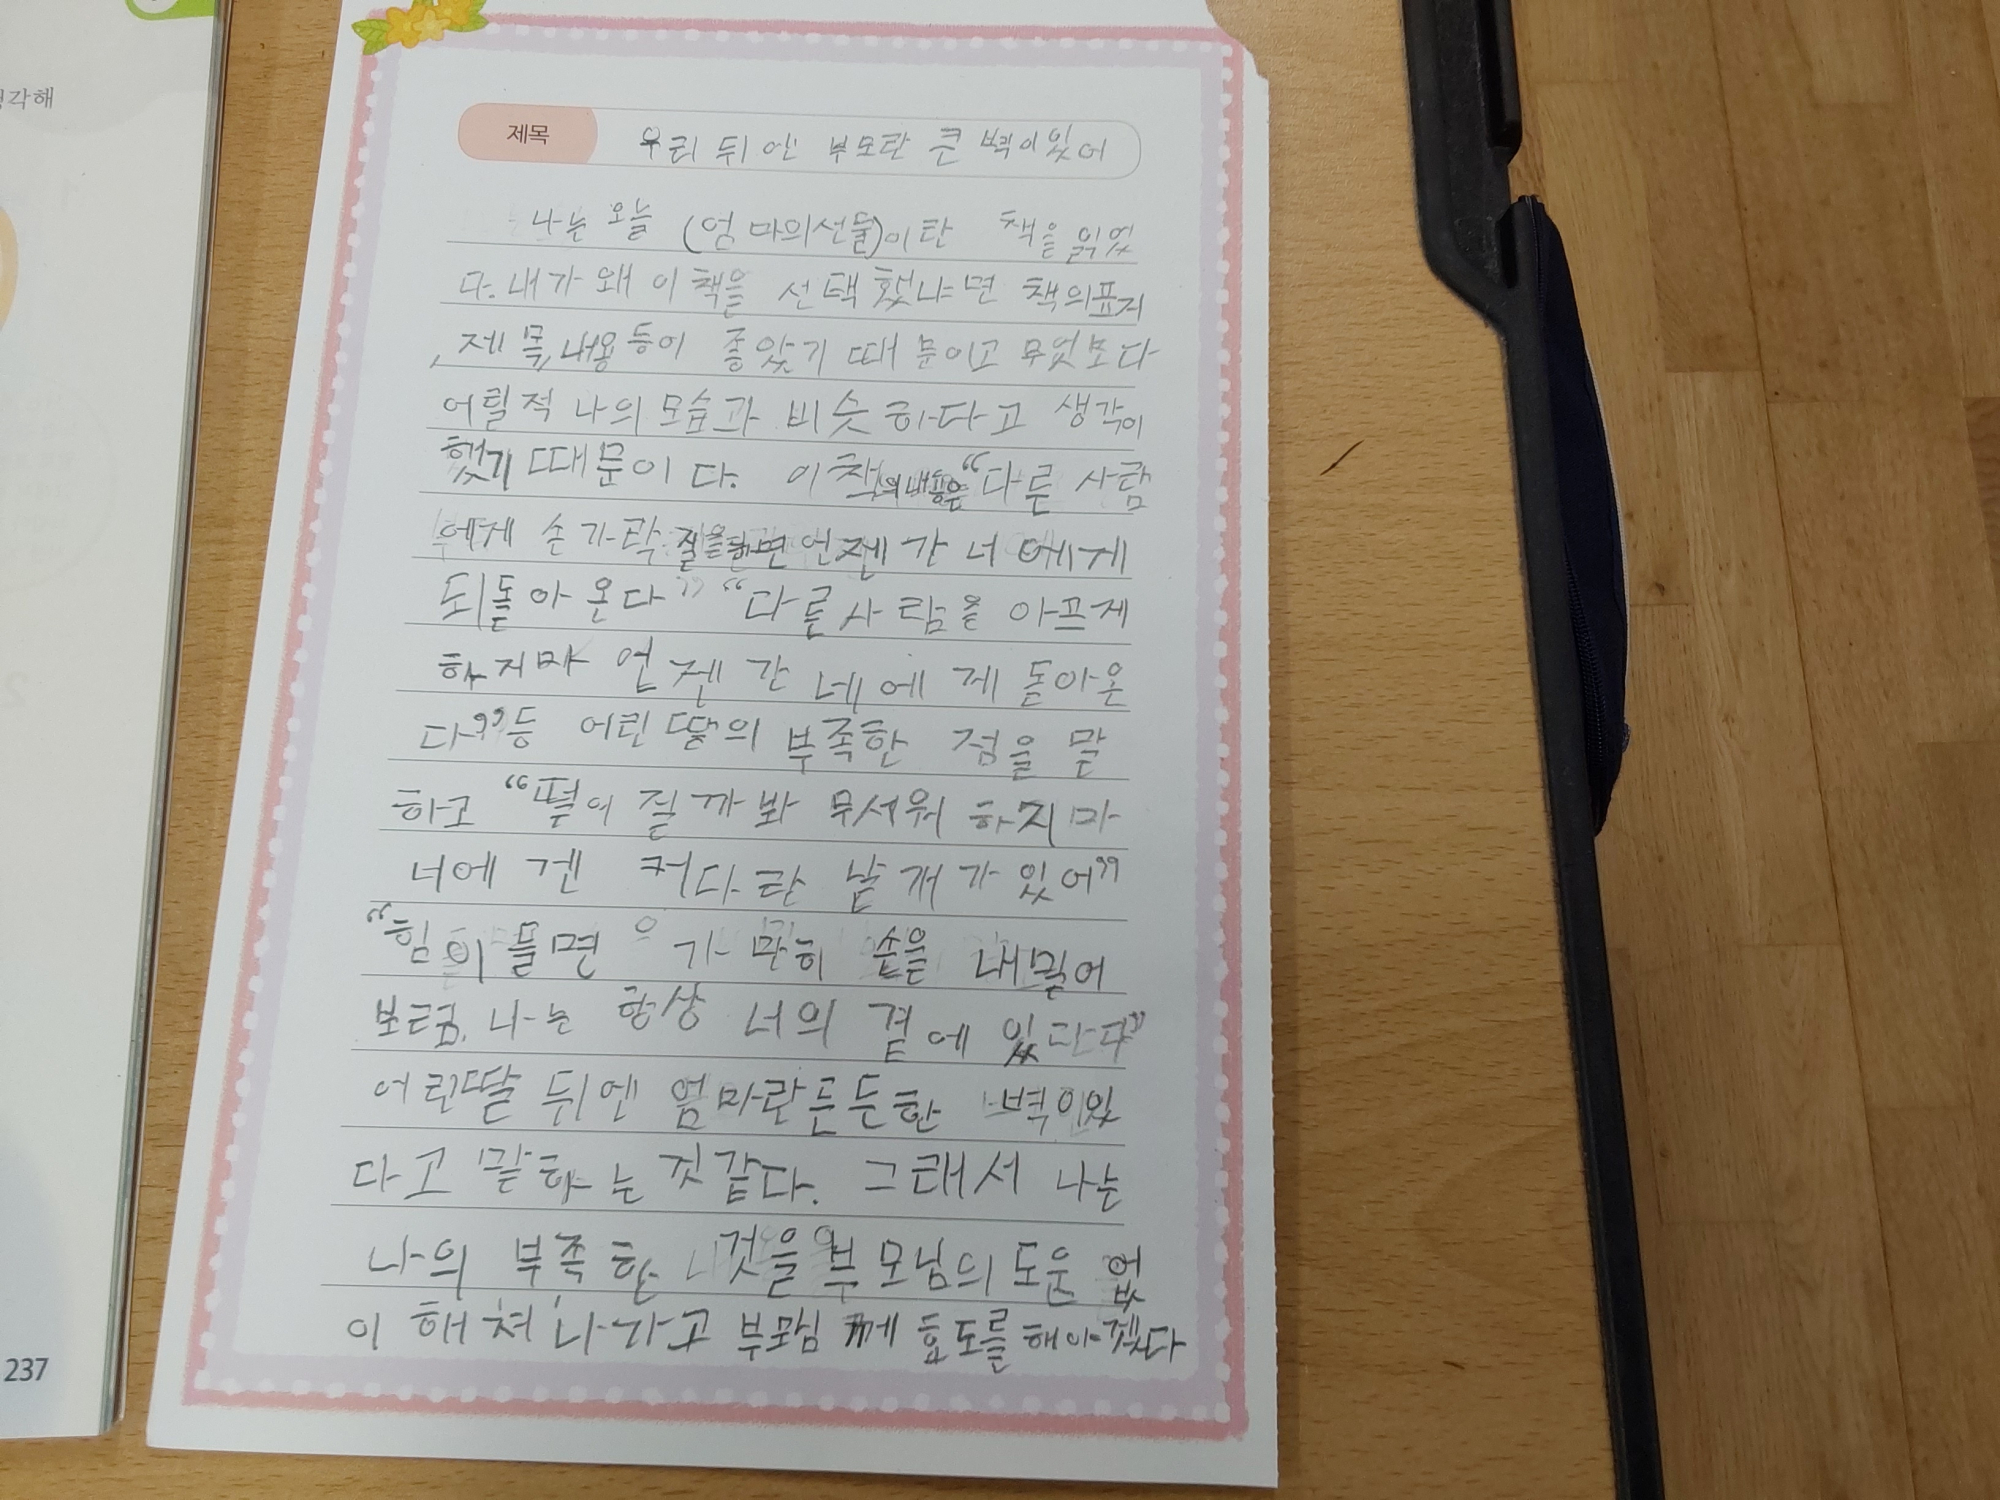 각해
237
제목
우리 뒤엔 부모란 큰 벽이있어
나는 오늘 (엄마의선물)이란 책을 읽었
다. 내가 왜 이 책을 선택했냐면 책의표지
, 제목, 내용 등이 좋았기 때문이고 무엇보다
어릴적 나의 모습과 비슷하다고 생각이
했기 때문이다. 이 책의내용은 “다른 사람
에게 손가락 질을하면 언젠간 너에게
되돌아온다” “다른사람을 아프게
하지마 언젠간 네에게 돌아온
다” 등 어린 딸의 부족한 점을 말
하고 “벽이 질까봐 무서워 하지마
너에겐 커다란 날개가 있어”
“힘이 들면 가만히 손을 내밀어
보렴. 나는 항상 너의 곁에 있단다”
어린딸 뒤엔 엄마란 든든한 벽이있
다고 말하는 것같다. 그래서 나는
나의 부족한 것을 부모님의 도움 없
이 해쳐 나가고 부모님께 효도를 해야겠다